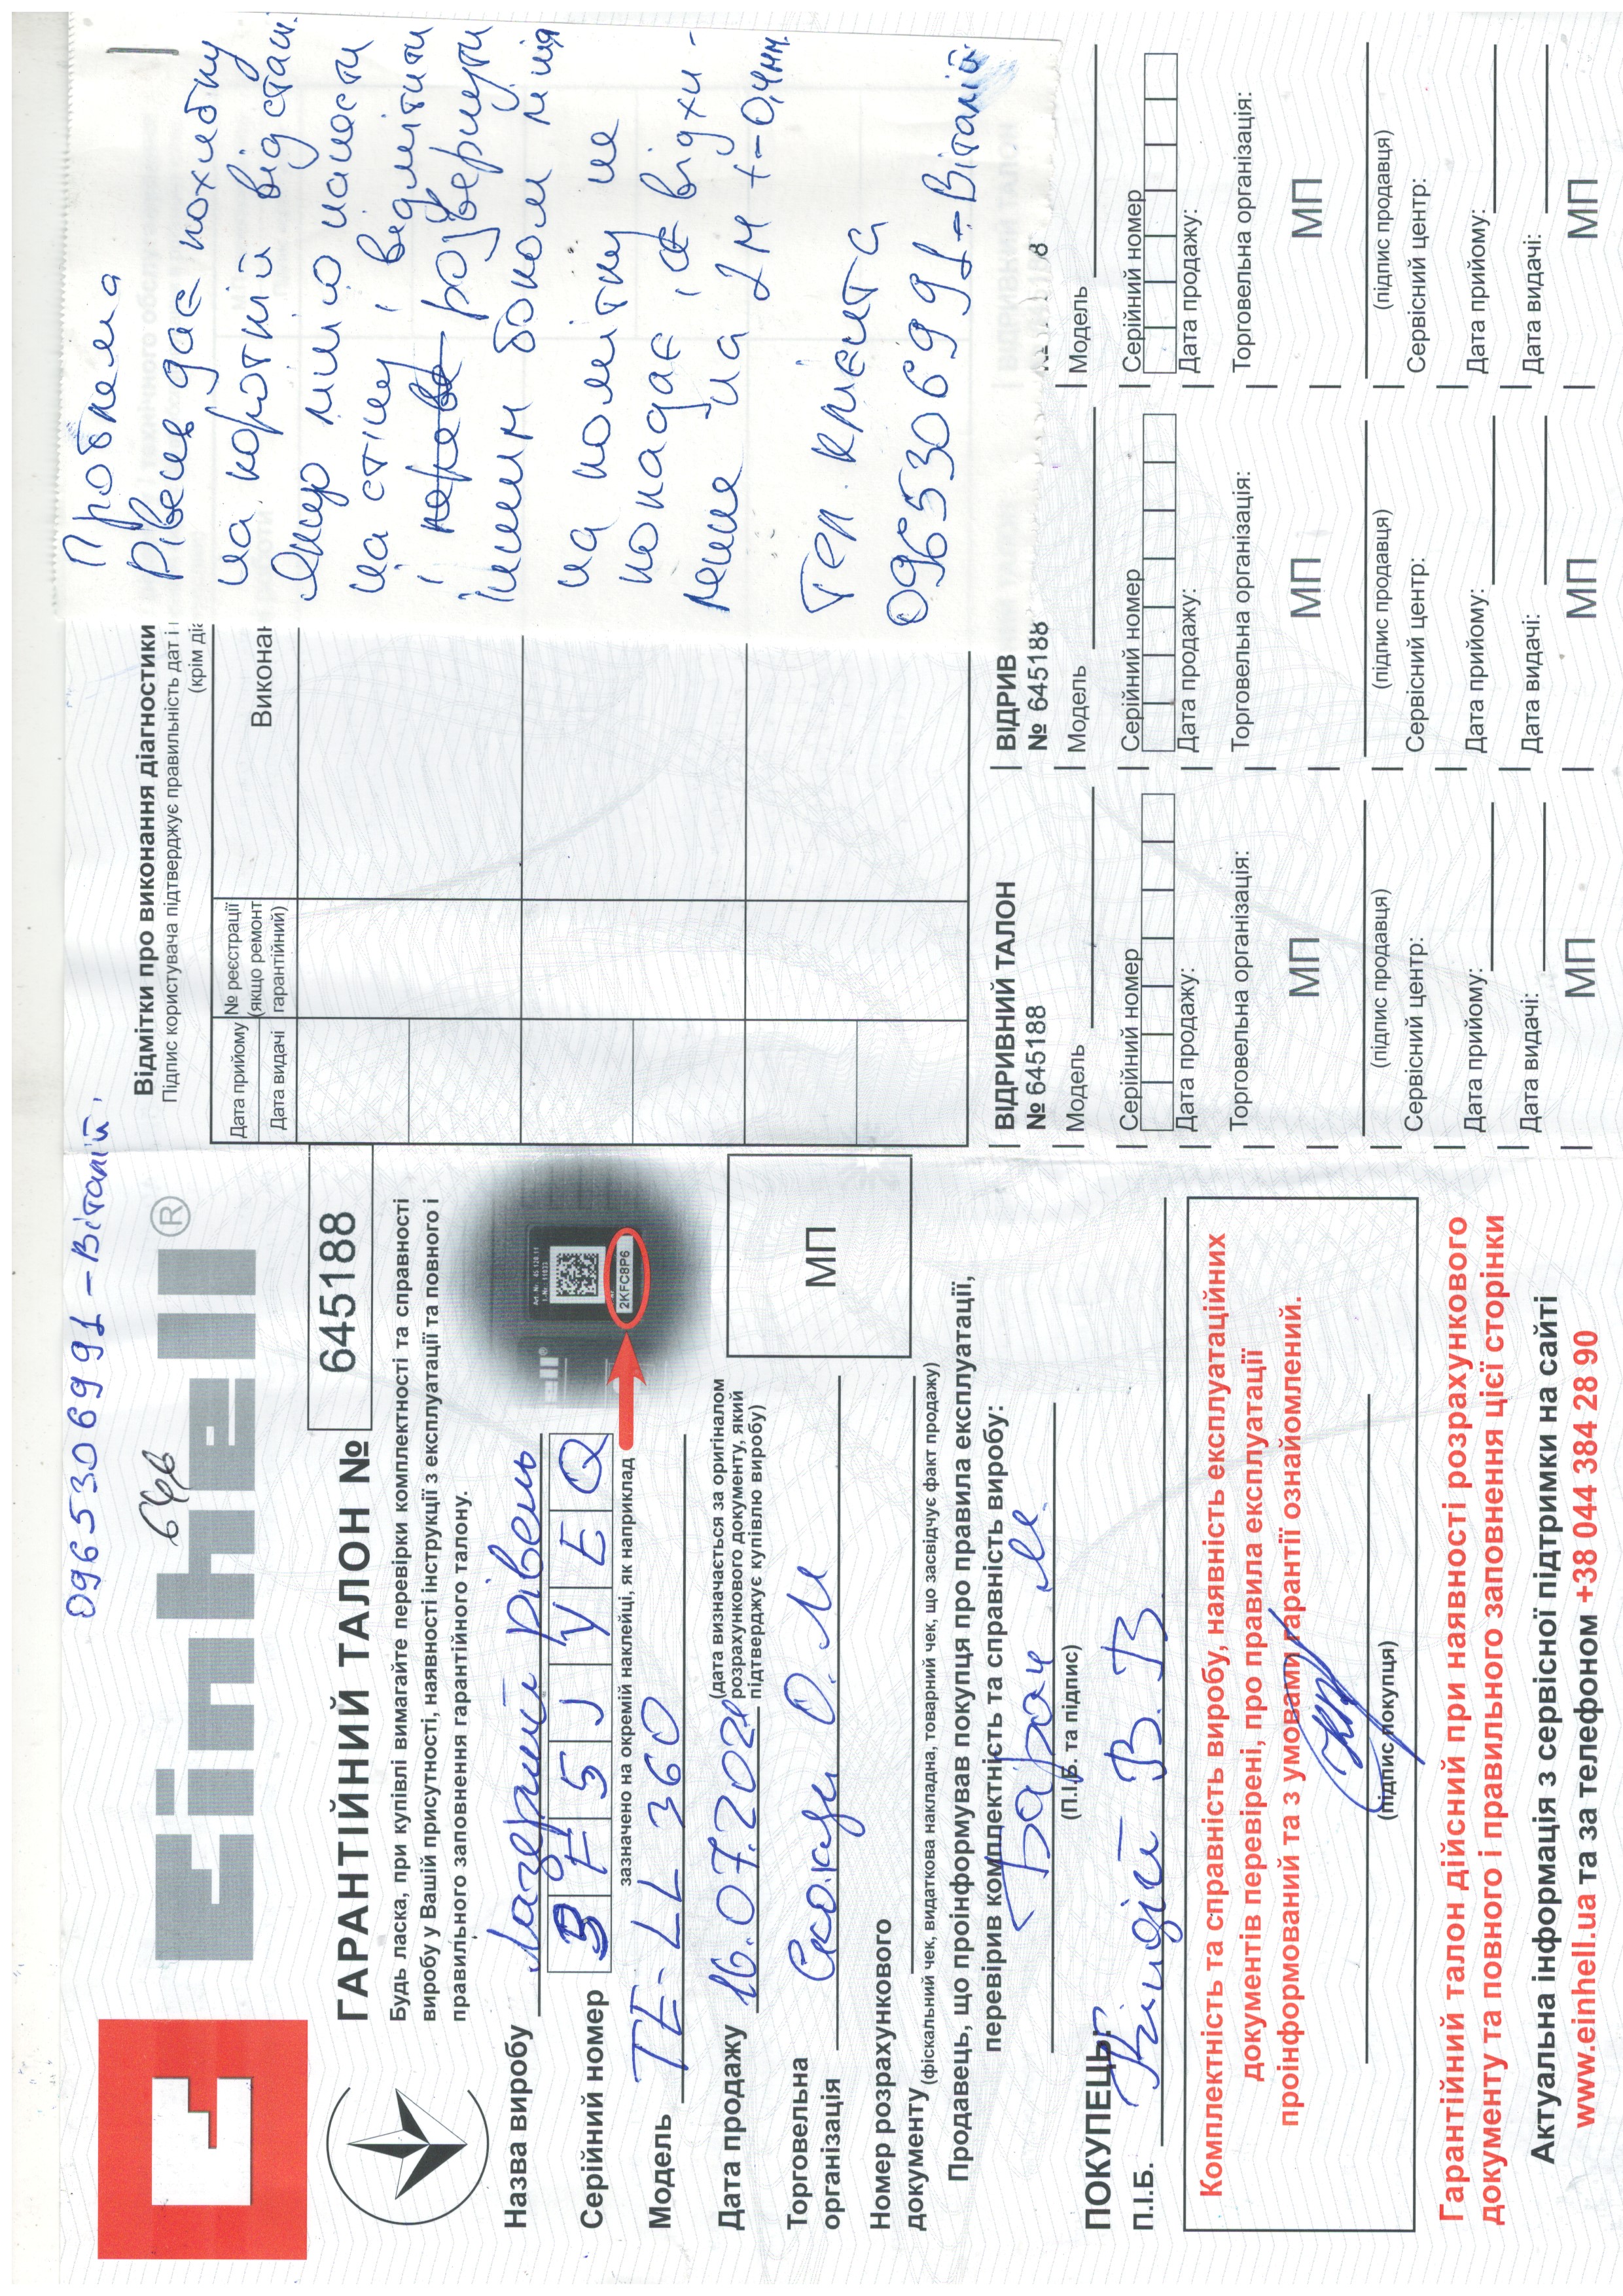 0965306991 – Віталій.
einhell®
ГАРАНТІЙНИЙ ТАЛОН № 645188
Будь ласка, при купівлі вимагайте перевірки комплектності та справності
виробу у Вашій присутності, наявності інструкції з експлуатації та повного і
правильного заповнення гарантійного талону.
Назва виробу Лазерний рівень
Серійний номер 5 J V E Q
зазначено на окремій наклейці, як наприклад
2KFC8P6
Модель TE-LL 360
Дата продажу 16.07.202
(дата визначається за оригіналом
розрахункового документу, який
підтверджує купівлю виробу)
МП
Торговельна
організація О. М
Номер розрахункового
документу
(фіскальний чек, видаткова накладна, товарний чек, що засвідчує факт продажу)
Продавець, що проінформував покупця про правила експлуатації,
перевірив комплектність та справність виробу:
(П.І.Б. та підпис)
ПОКУПЕЦЬ:
П.І.Б. В. В
Комплектність та справність виробу, наявність експлуатаційних
документів перевірені, про правила експлуатації
проінформований та з умовами гарантії ознайомлений.
(підпис покупця)
Гарантійний талон дійсний при наявності розрахункового
документу та повного і правильного заповнення цієї сторінки
Актуальна інформація з сервісної підтримки на сайті
www.einhell.ua та за телефоном +38 044 384 28 90
Відмітки про виконання діагностики
Підпис користувача підтверджує правильність дат і
(крім
Дата прийому
Дата видачі
№ реєстрації
(якщо ремонт
гарантійний)
Виконан
Проблема
Рівень дає похибку
на короткій відстані.
Якщо лінію нанести
на стіну і відмітити
і розвернути
іншим боком лінія
на помітку не
попадає, є відхи-
лення на 2м +-0,4мм.
Тел. клієнта
0965306991-Віталій
ВІДРИВНИЙ ТАЛОН
№ 645188
Модель
Серійний номер
Дата продажу:
Торговельна організація:
МП
(підпис продавця)
Сервісний центр:
Дата прийому:
Дата видачі:
МП
ВІДРИВ
№ 645188
Модель
Серійний номер
Дата продажу:
Торговельна організація:
МП
(підпис продавця)
Сервісний центр:
Дата прийому:
Дата видачі:
МП
Модель
Серійний номер
Дата продажу:
Торговельна організація:
МП
(підпис продавця)
Сервісний центр:
Дата прийому:
Дата видачі:
МП